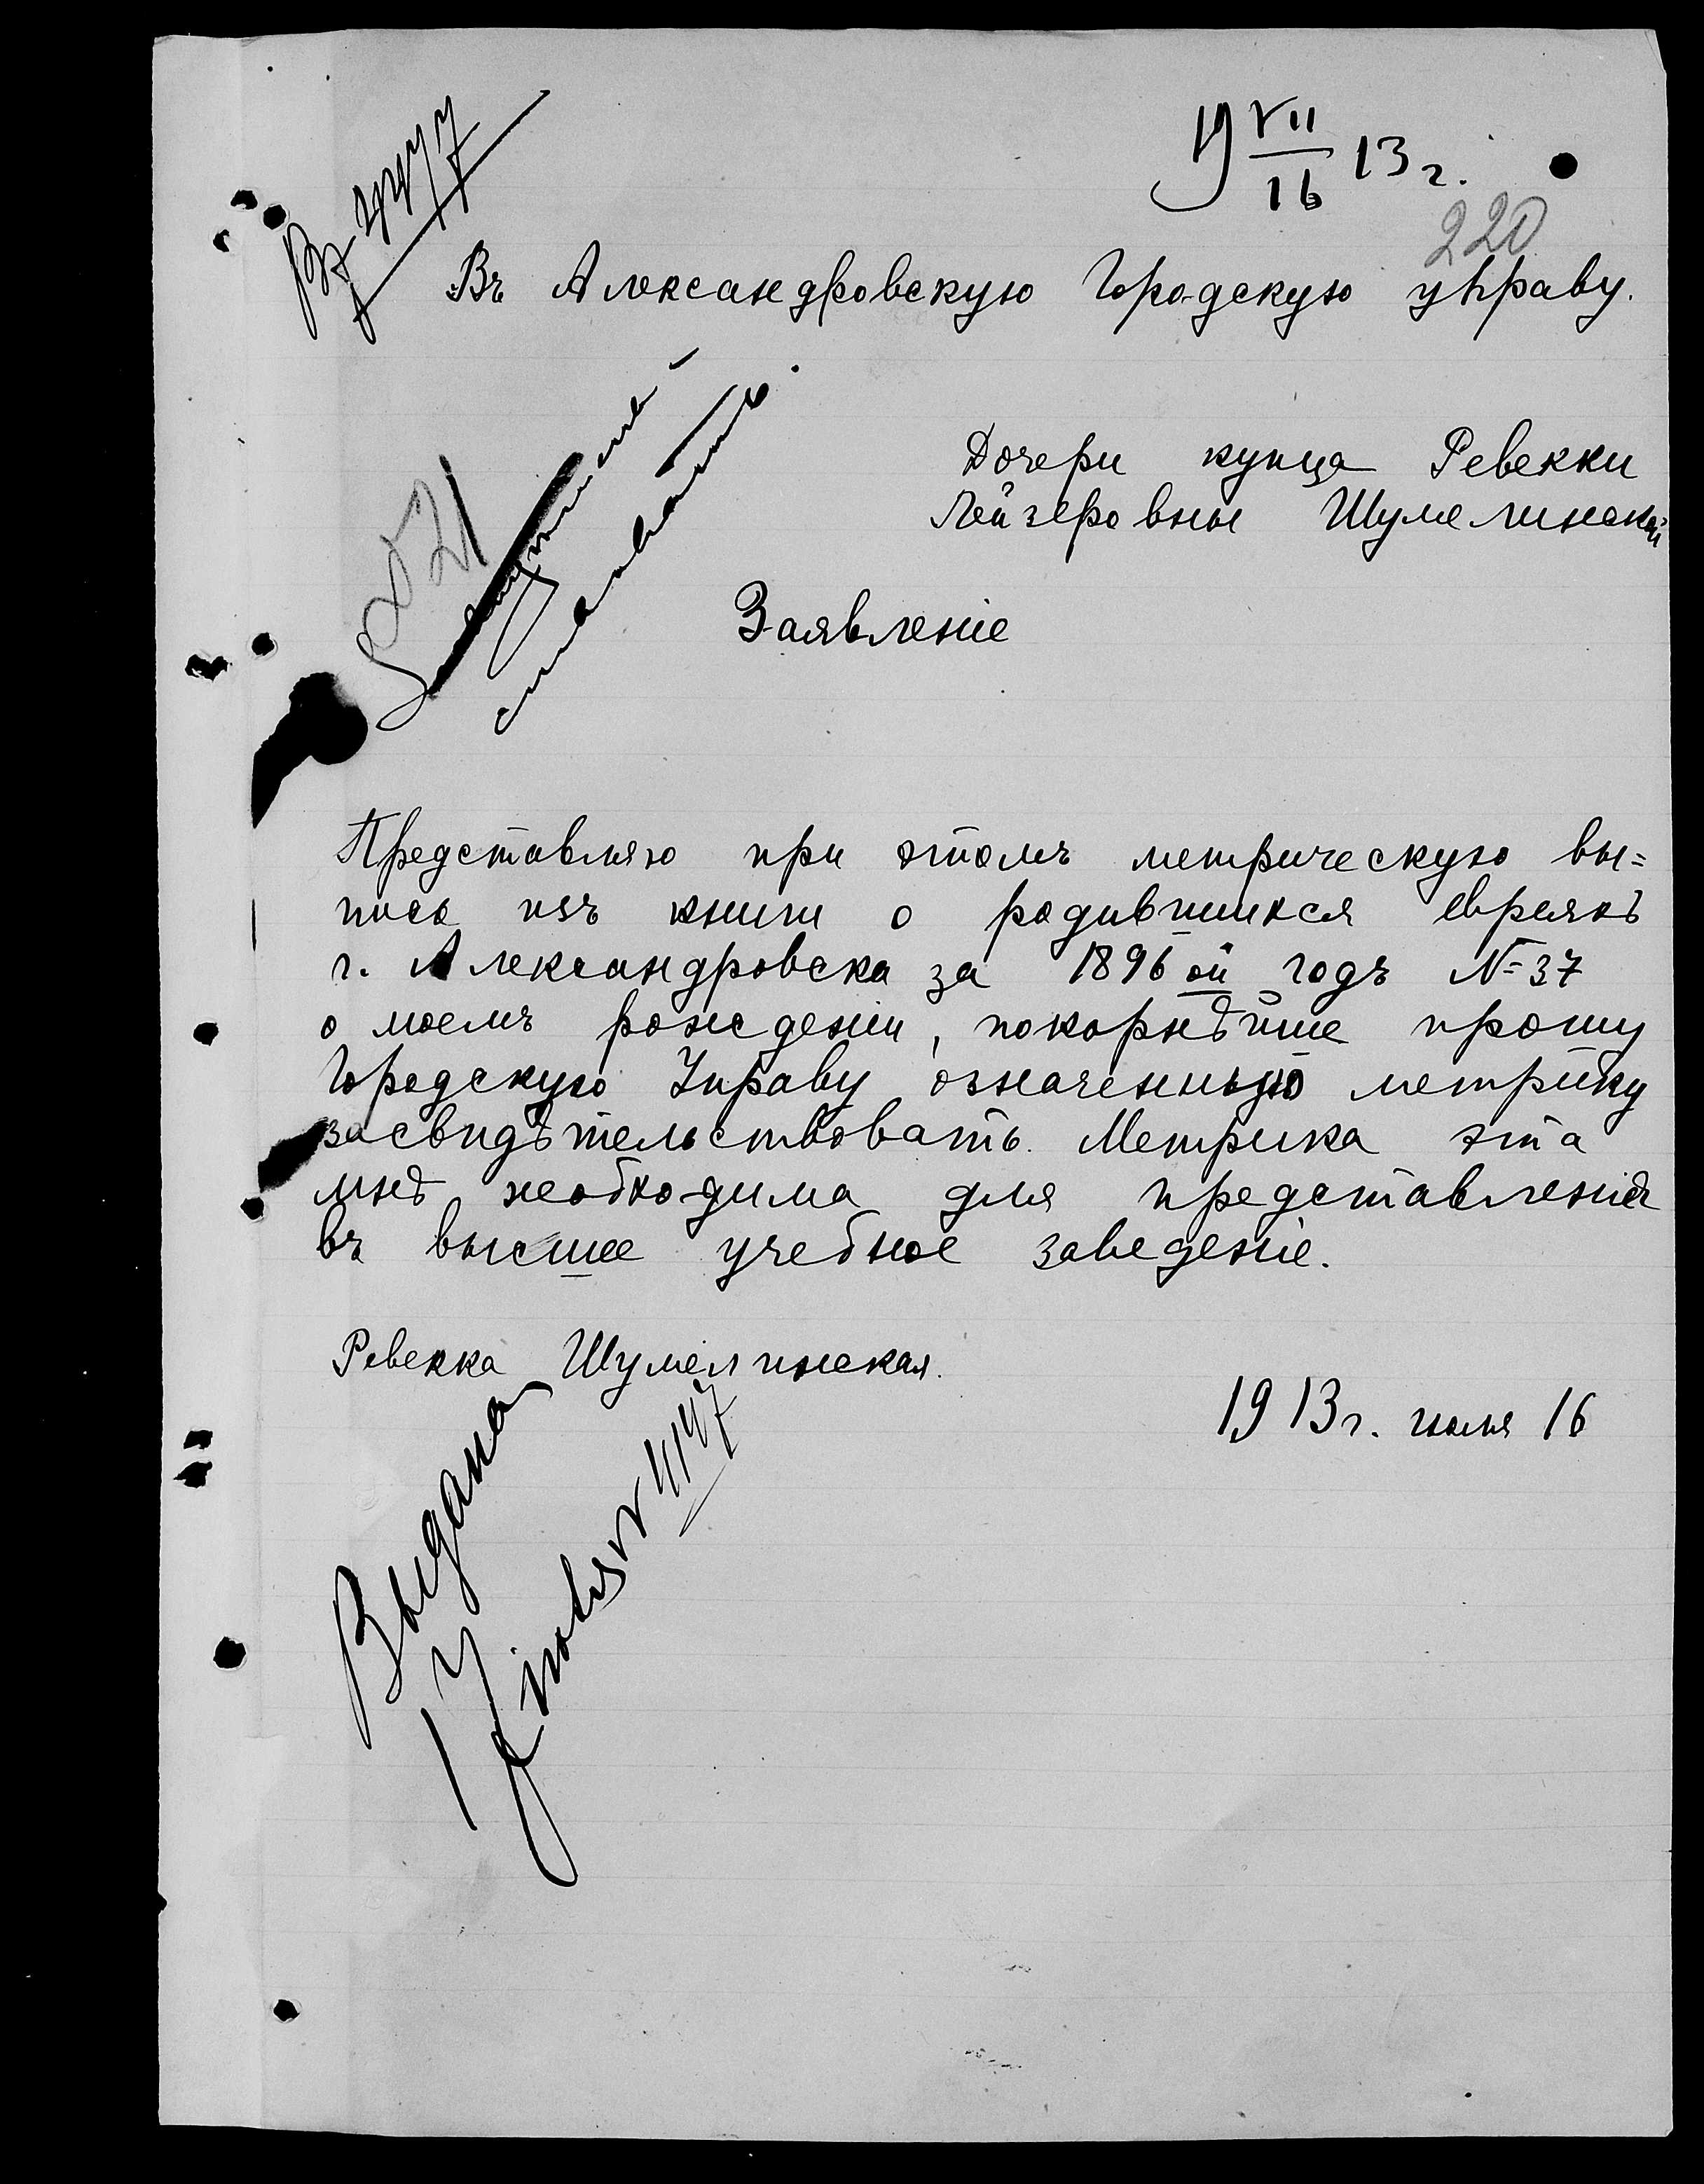 19 VII/16 13 г.
220
Въ Александровскую Городскую управу.
Дочери купца Ревекки
Лейзеровны Шумелинской
221
Засвидетельствовать.
Заявленіе
Представляю при этомъ метрическую вы=
пись изъ книги о родившихся евреяхъ
г. Александровска за 1896ой годъ № 37
о моемъ рожденіи, покорнѣйше прошу
Городскую Управу означенную метрику
засвидѣтельствовать. Метрика эта
мнѣ необходима для представленія
въ высшее учебное заведеніе.
Ревекка Шумелинская.
1913 г. июля 16
Выдана
17 июля № 4147